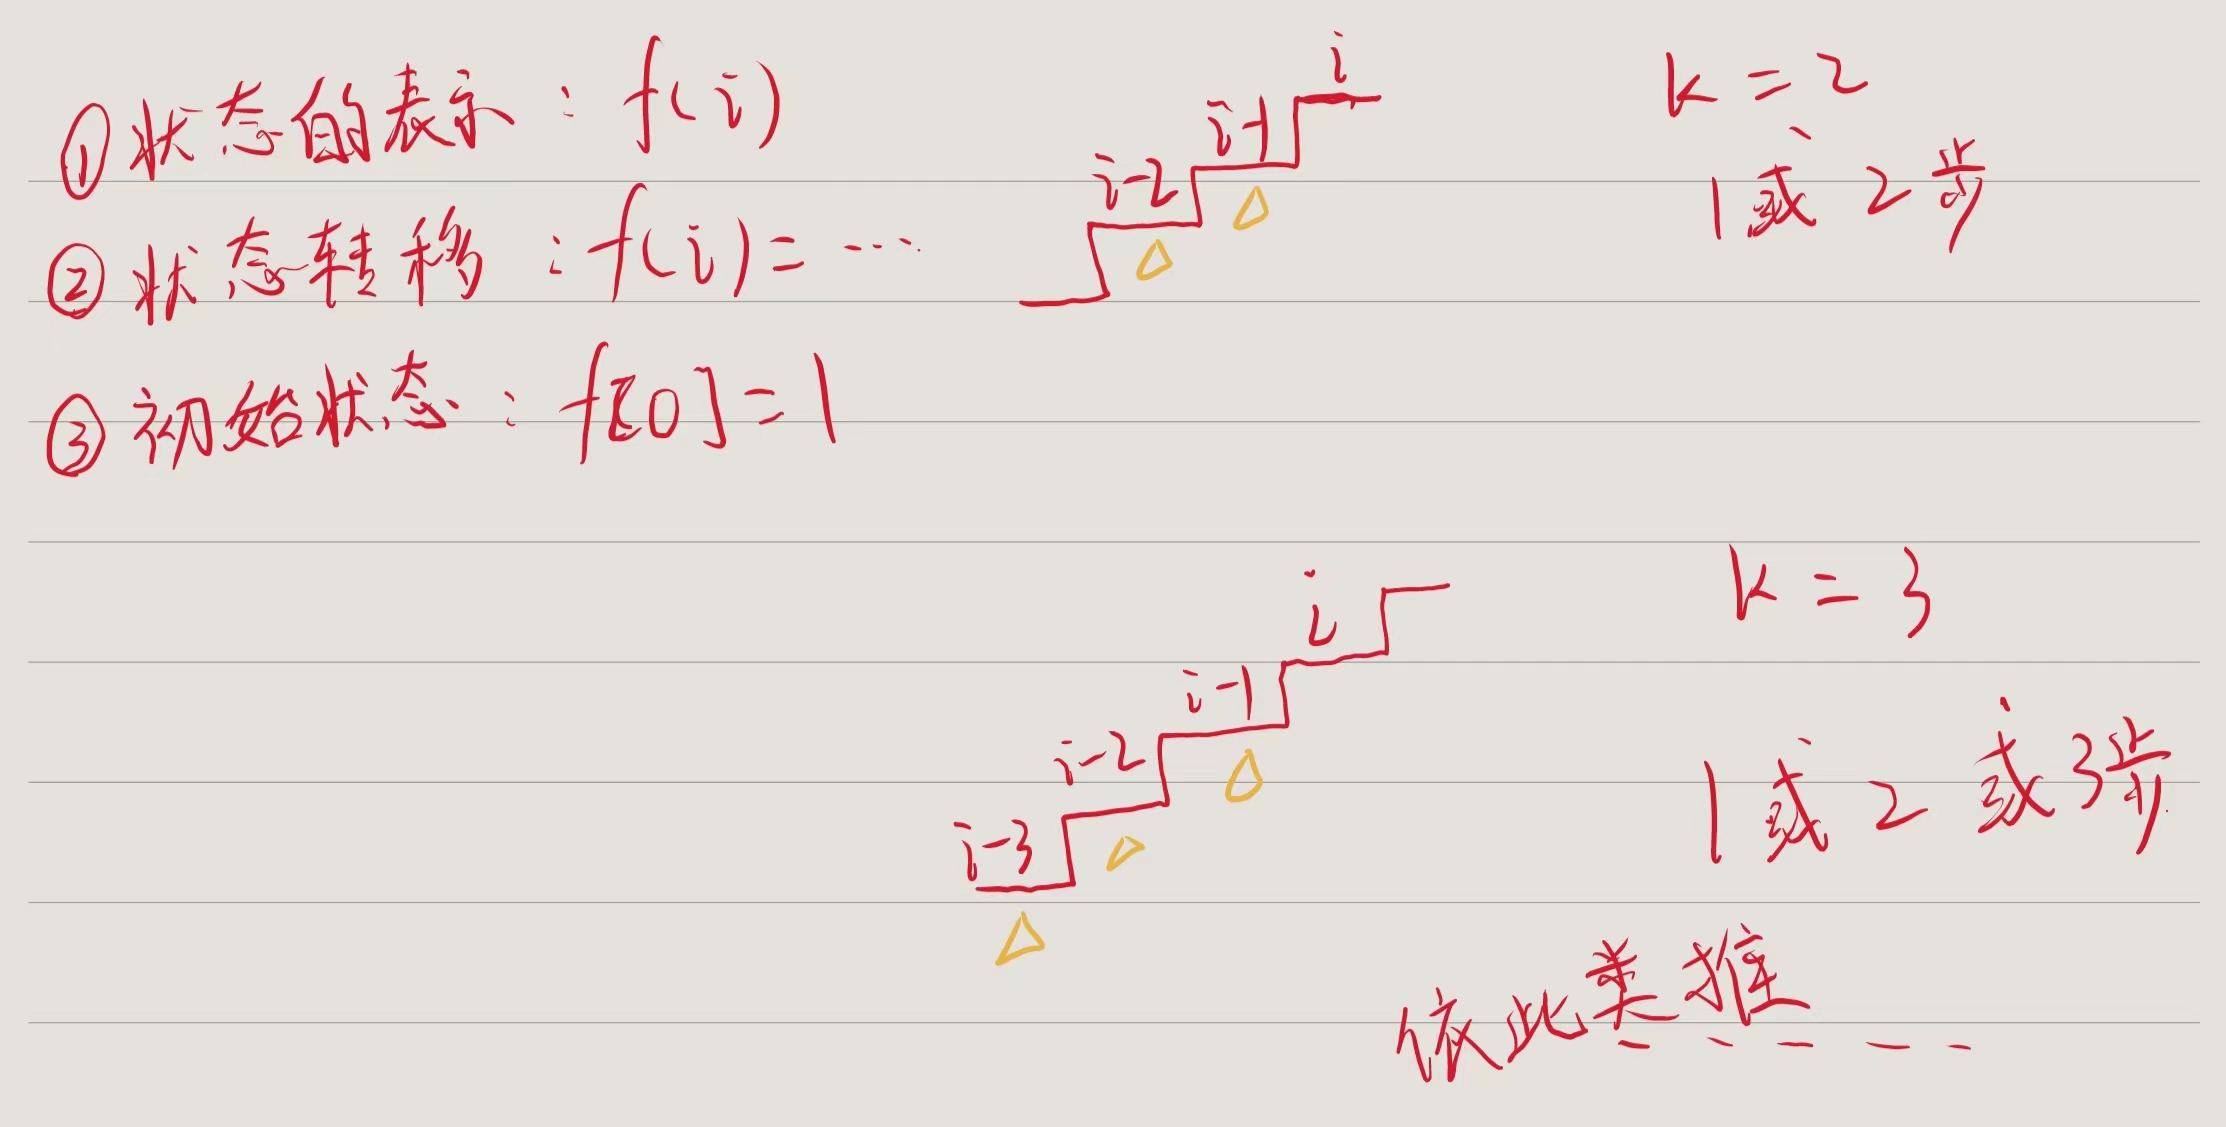 ①状态的表示：f(i)
②状态转移：f(i)=…
③初始状态：f[0]=1
i
i-1
i-2
k=2
1或2步
k=3
i
i-1
i-2
i-3
1或2或3步
依此类推-----